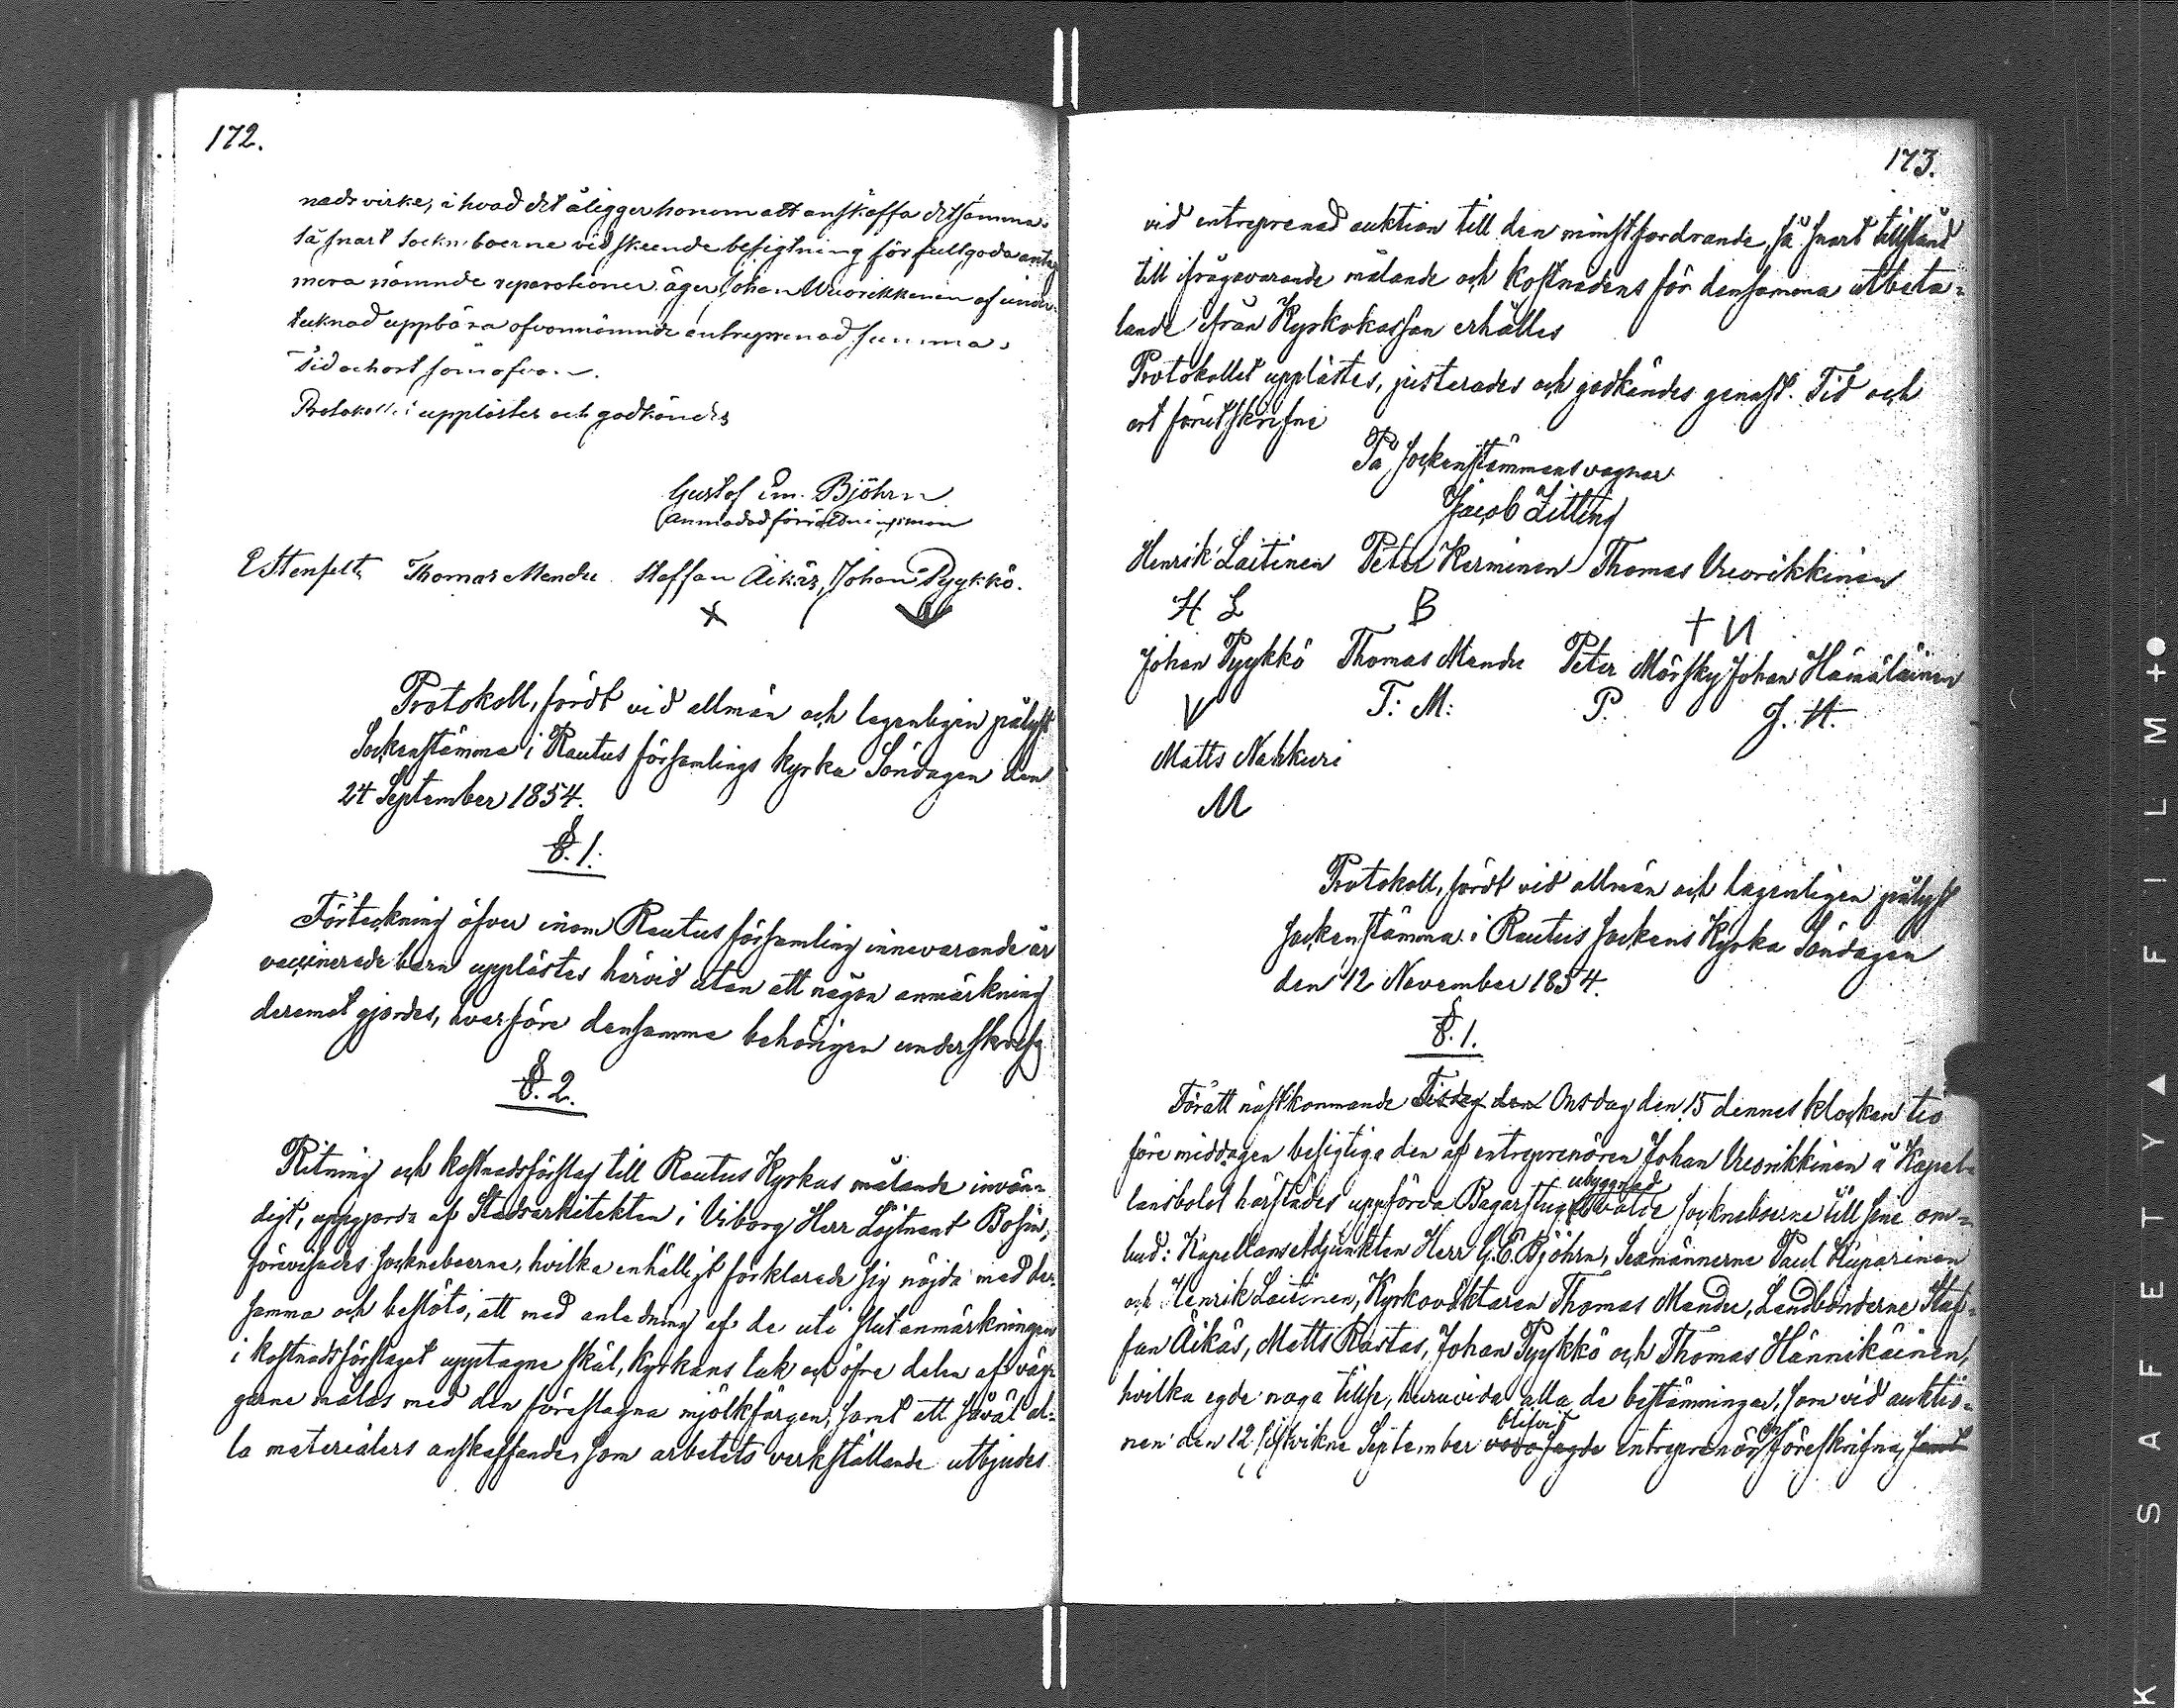 172.
nads virke, i hvad det åligger honom att anskaffa detsamma.
Så snart Sockn.boerne vid skeende besigtning för fullgoda antaga
mera nämnde reparationer äger Johan Wuorikkinen af under-
tecknad uppbära ofvannämnde entreprenad summa.
Tid och ort som ofvan.
Protokollet upplästes och godkändes
Gustaf Em. Björn
Anmodad förrättningsman
E Stenfelt Thomas Mandu Staffan Äikäs, Johan Pyykkö.
Protokoll, fördt vid allmän och lagenligen pålyst
Sockenstämma i Rautus församlings kyrka Söndagen den
24 September 1854.
§. 1.
Förteckning öfver inom Rautus församling innevarande år
vaccinerade barn upplästes härvid utan att någon anmärkning
deremot gjordes, hvarföre densamma behörigen underskrefs
§. 2.
Ritning och kostnadsförslag till Rautus Kyrkas målande invän=
digt, uppgjorda af Stadsarkitekten i Viborg Herr Löjtnant Bosin,
förevisades socknboerne, hvilka enhälligt förklarade sig nöjda med den
samma och beslöts, att med anledning af de uti slutanmärkningen
i kostnadsförslaget upptagne skäl, kyrkans tak och öfre delen af väg=
garne målas med den föreslagna mjölkfärgen, samt att såväl al=
la materialers anskaffande, som arbetets verkställande utbjudes
173.
vid entreprenad auktion till den minstfordrande, så snart tillstånd
till ifrågavarande målande och kostnadens för densamma utbeta=
lande ifrån Kyrkokassan erhålles
Protokollet upplästes, justerades och godkändes genast. Tid och
ort förutskrifne
På Sockenstämmans vagnar
Jacob Zitting
Henrik Laitinen Peter Karminen Thomas Wuorikkinen
H L B + И
Johan Pyykkö Thomas Mandu Peter Mörsky Johan Hämäläinen
V T: M: P. J. H.
Matts Nahkuri
M
Protokoll, fördt vid allmän och lagenligen pålyst
sockenstämma i Rautus Sockens Kyrka Söndagen
den 12 November 1854.
§. 1.
För att nästkommande Tisdag den Onsdag den 15 dennes klockan tio
före middagen besigtiga den af entreprenören Johan Wuorikkinen å Kapel=
lansbolet härstädes uppförda Bagarstugubyggnad valde socknboerne till sine om=
bud: Kapellansadjunkten Herr G. E. Björn, Sexmännerne Paul Huparinen
och Henrik Laitinen, Kyrkovaktaren Thomas Mandu, Landbönderne Staf=
fan Äikäs, Matts Rastas, Johan Pyykkö och Thomas Hännikäinen,
hvilka egde noga tillse, huruvida alla de bestämningar, som vid auktio=
nen den 12 sistvikne September blifvit entreprenören föreskrifne, samt